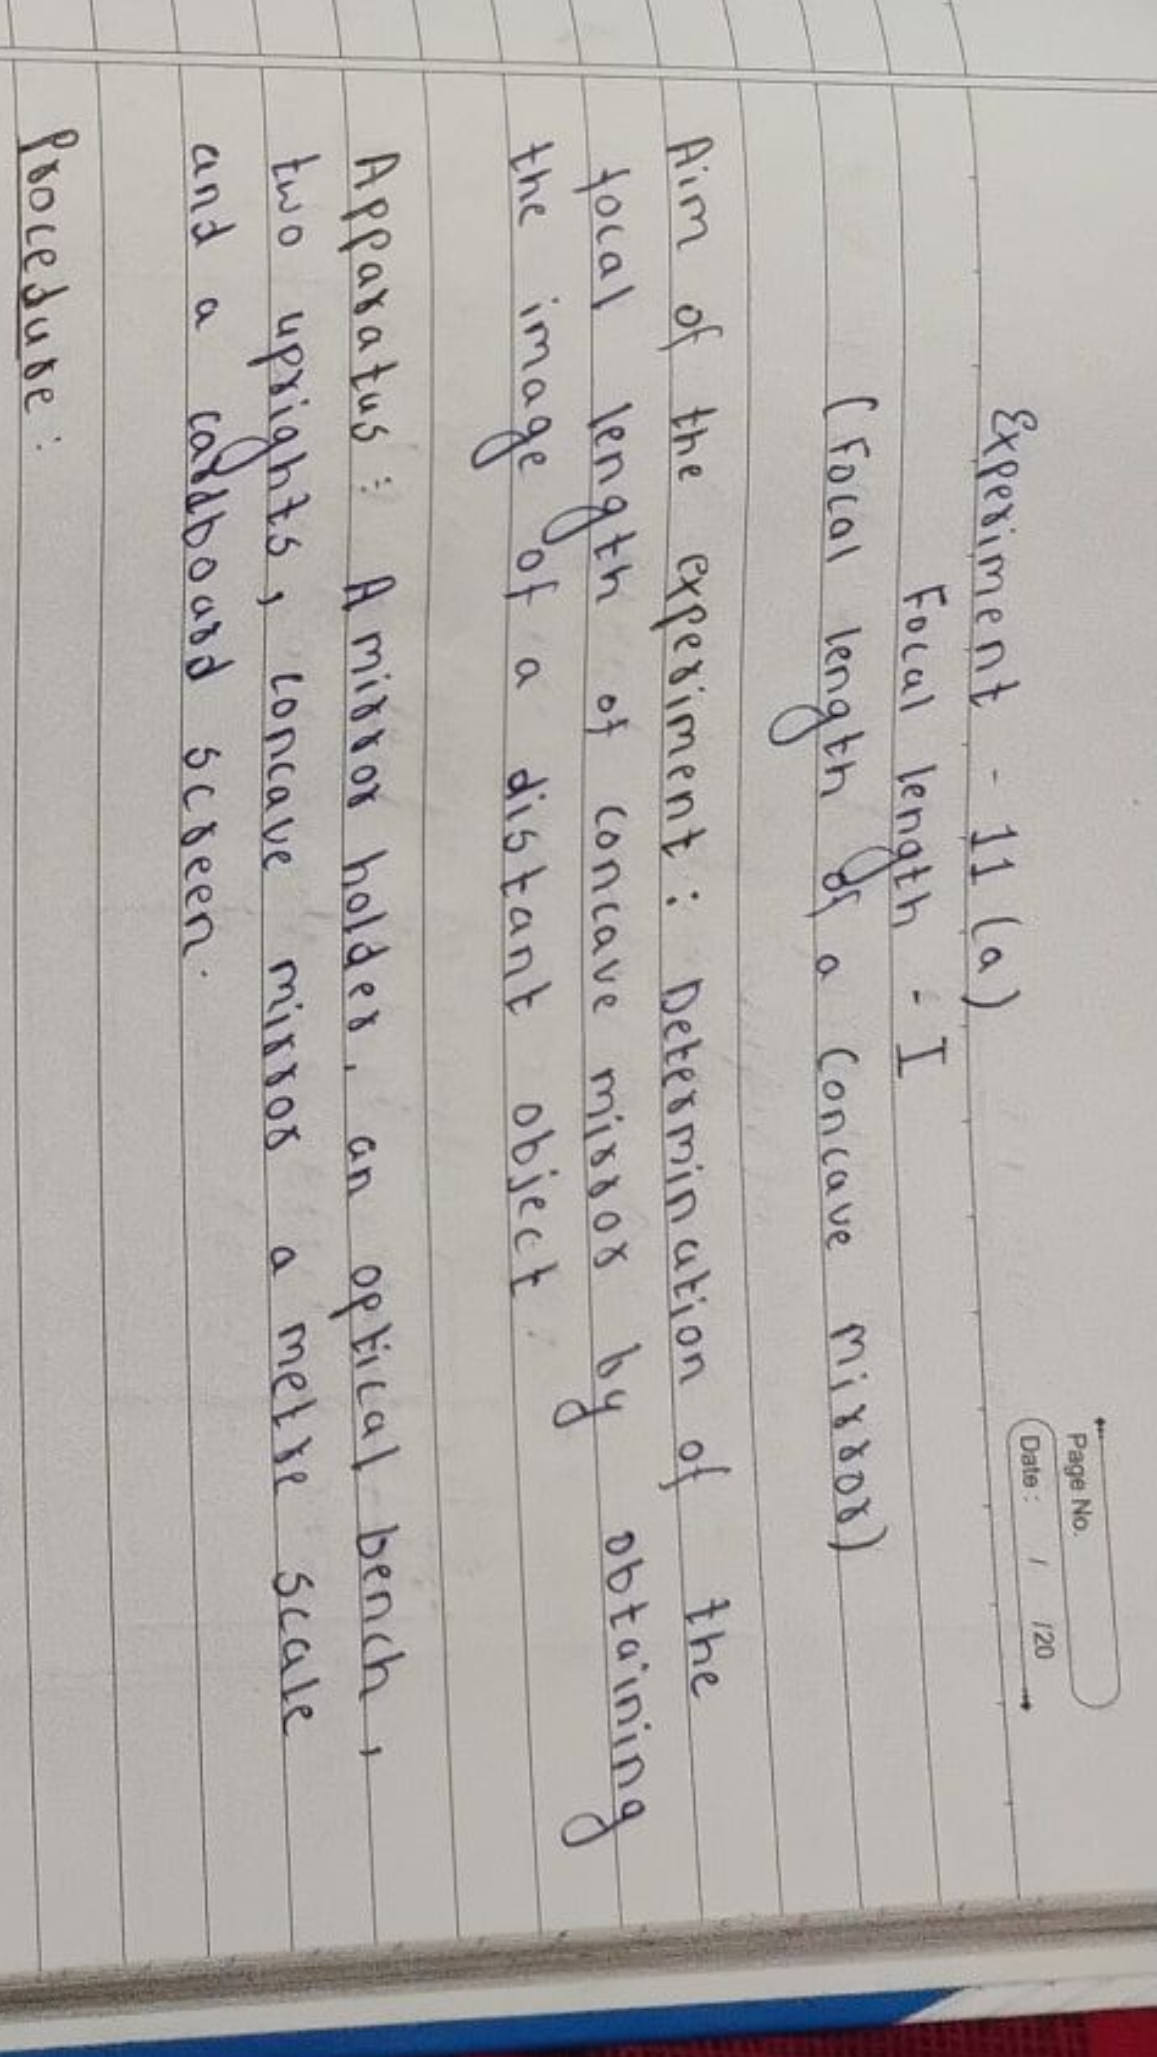 Page No.
Date : / /20
Experiment - 11 (a)
Focal length - I
(Focal length of a concave mirror)
Aim of the experiment : Determination of the
focal length of concave mirror by obtaining
the image of a distant object.
Apparatus : A mirror holder, an optical bench,
two uprights, concave mirror a metre scale
and a cardboard screen.
Procedure :